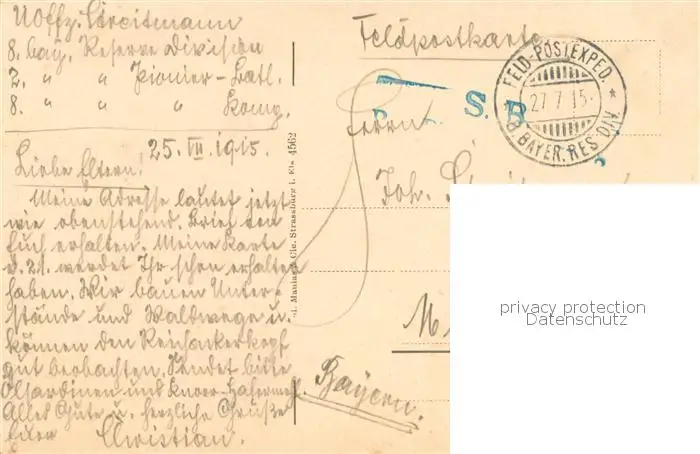 Uoffz. Streitmann
8. bay. Reserve Division
2. " " Pionier-Batl.
8. " " " Komp.
25. VII. 1915.
Liebe Eltern!
Meine Adresse lautet jetzt
wie obenstehend. Brief von
Euch erhalten. Meine Karte
v. 21. werdet Ihr schon erhalten
haben. Wir bauen Unter-
stände und Waldwege u.
können den Reichsackerkopf
gut beobachten. Sendet bitte
Ölsardinen und Knorr-Hafermehl.
Alles Gute u. herzliche Grüße
Euer Christian.
Cie. Strassburg i. Els. 4562
Feldpostkarte
S. B
FELD-POSTEXPED.
27 7 15
8. BAYER. RES. DIV.
Herrn
Joh.
Bayern.
privacy protection
Datenschutz